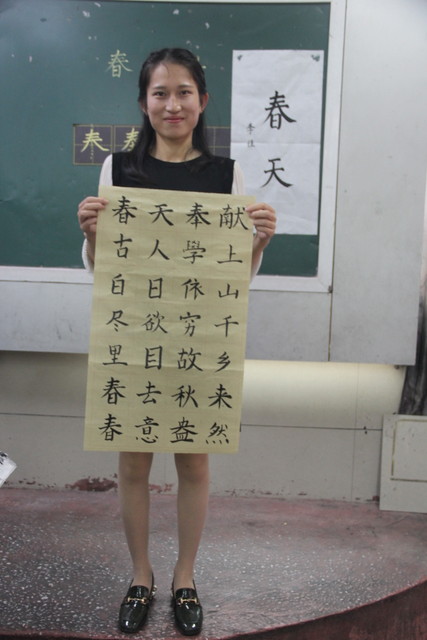 春
春天
春天奉献
古人學上
白日依山
尽欲穷千
里目故乡
春去秋来
春意盎然